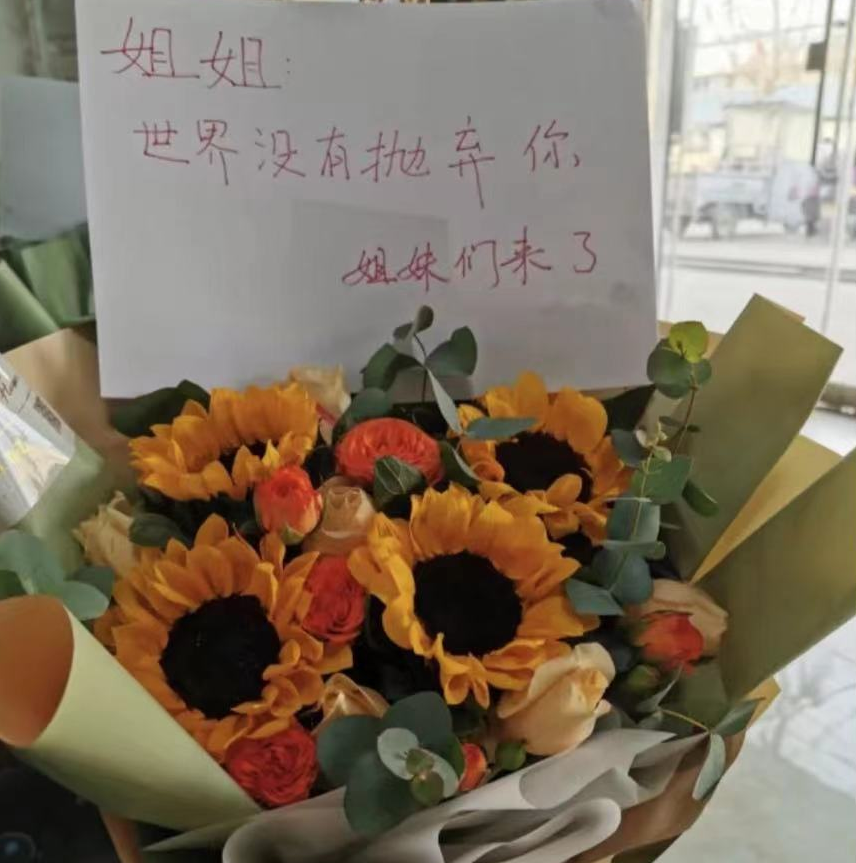 姐姐:
世界没有抛弃你,
姐妹们来了